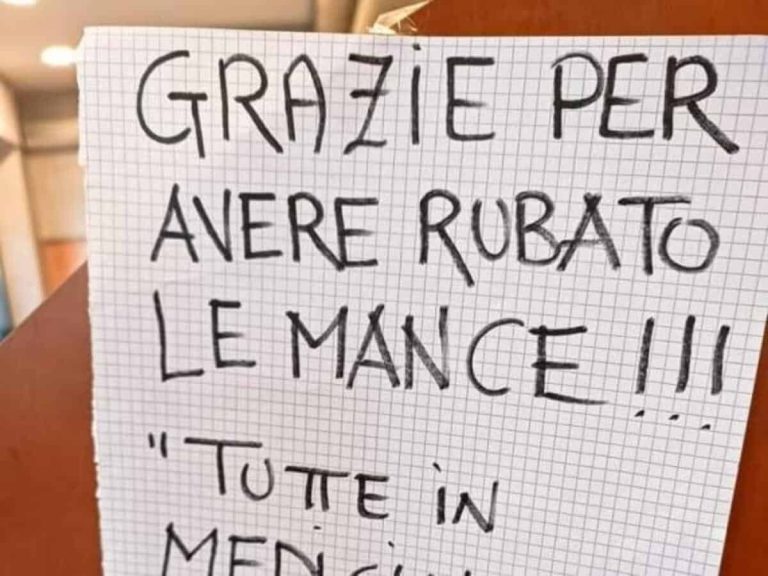 GRAZiE PER
AVERE RUBATO
LE MANCE!!!
"TUTTE iN